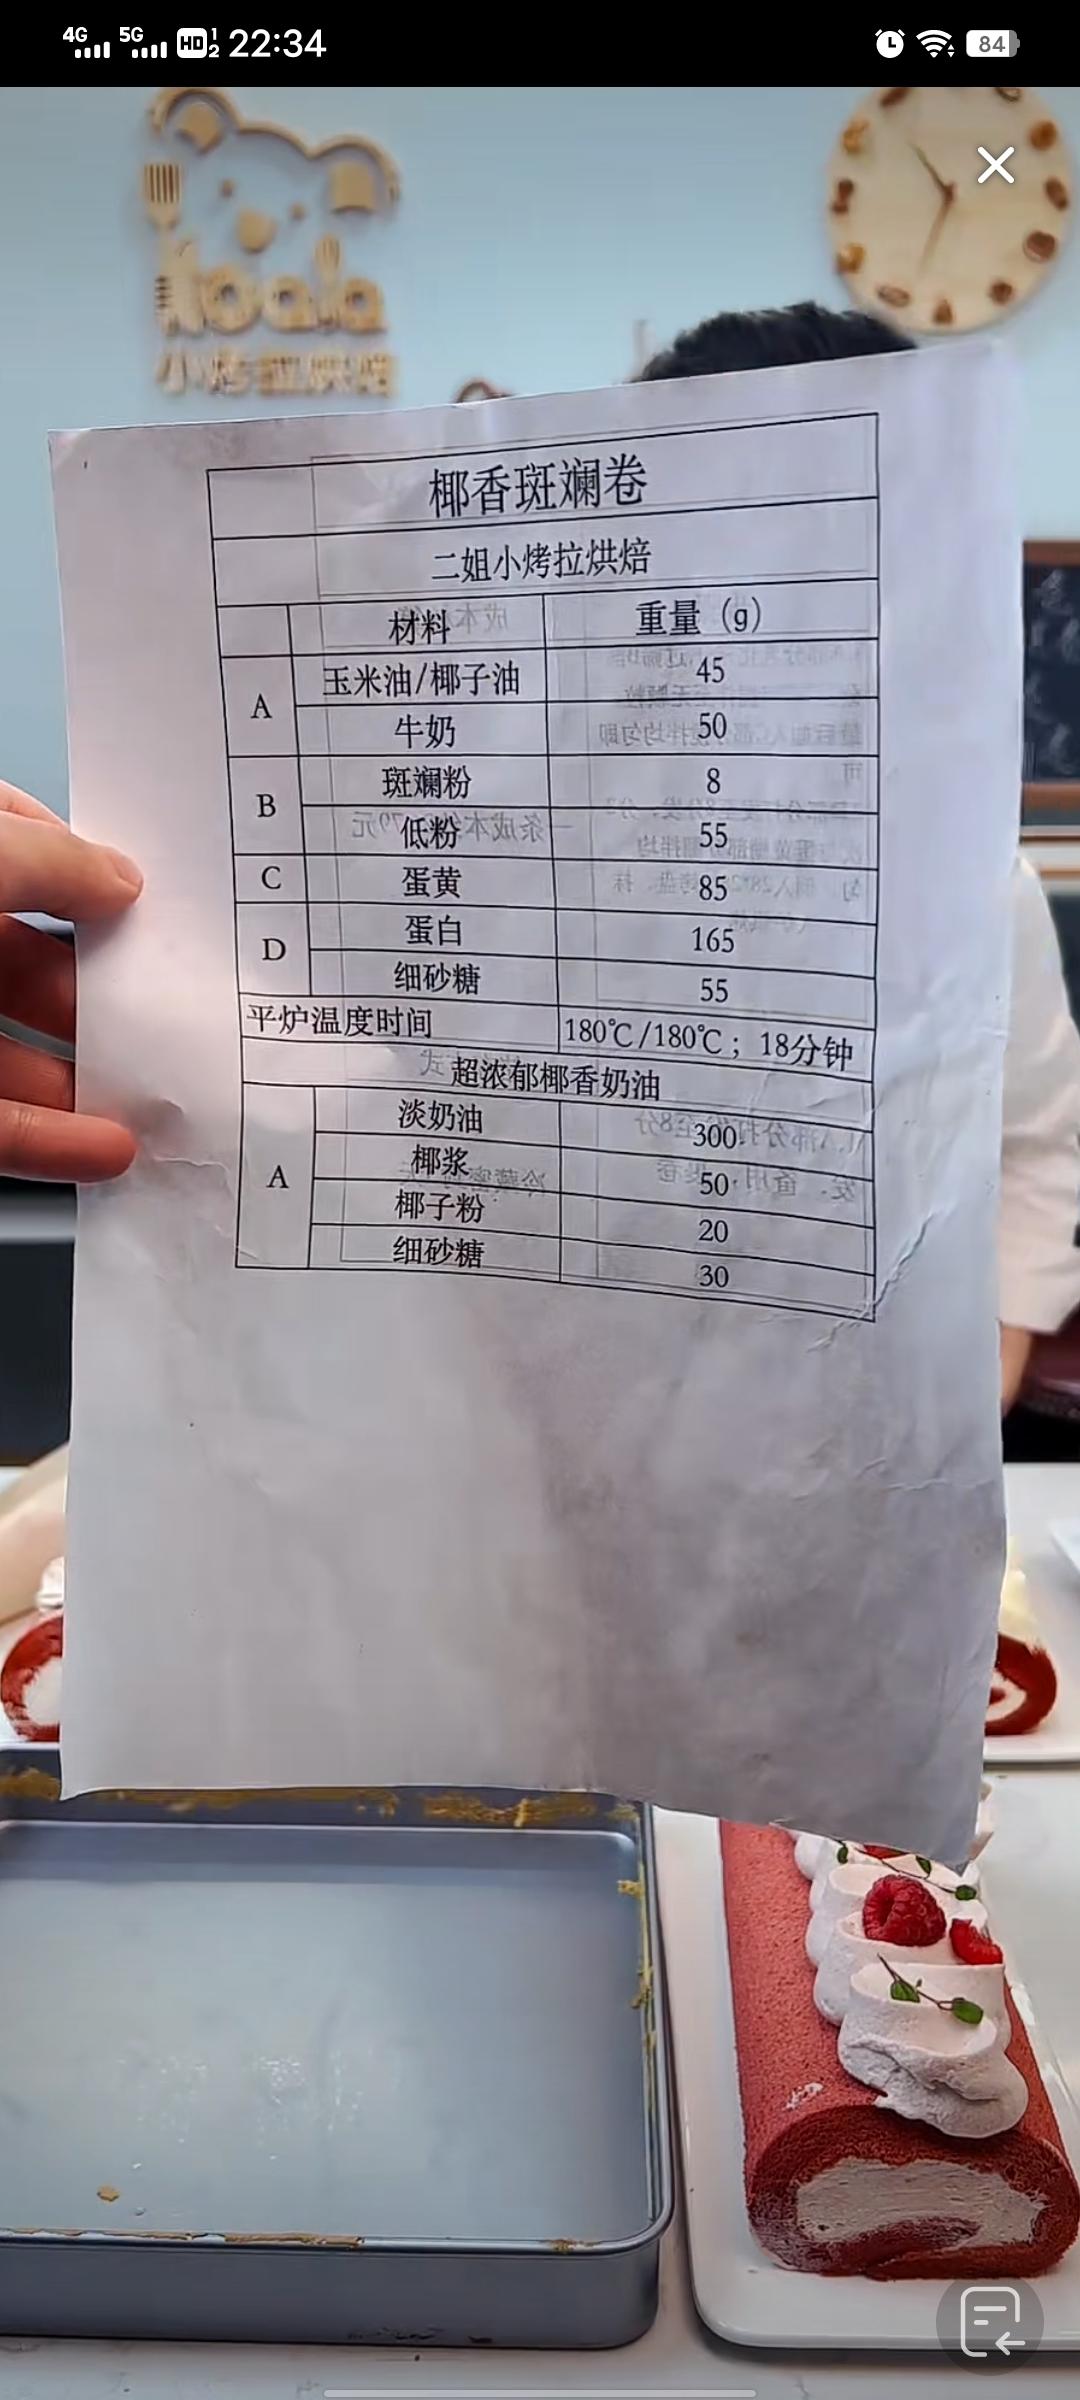 4G 5G HD 1 2 22:34 84
koala
小烤拉烘焙
椰香斑斓卷
二姐小烤拉烘焙
材料 重量（g）
A 玉米油/椰子油 45
牛奶 50
B 斑斓粉 8
低粉 55
C 蛋黄 85
D 蛋白 165
细砂糖 55
平炉温度时间 180℃/180℃；18分钟
超浓郁椰香奶油
A 淡奶油 300
椰浆 50
椰子粉 20
细砂糖 30